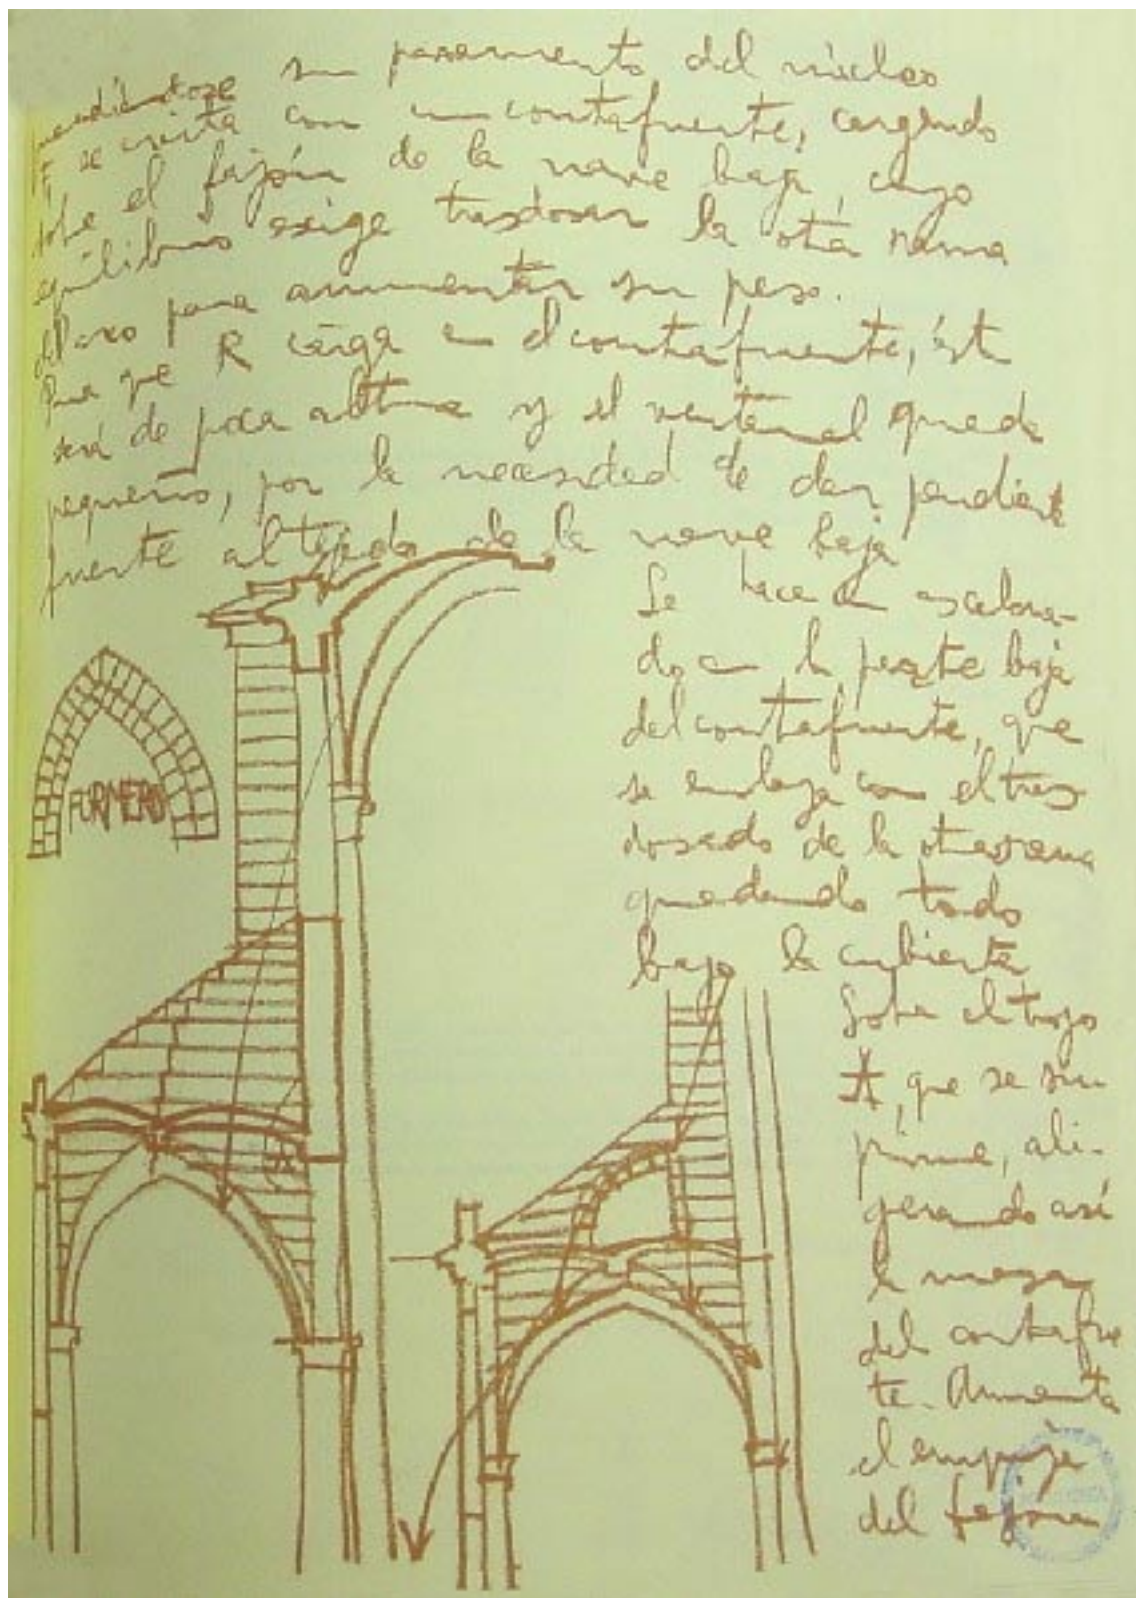 su paramento del núcleo
se evita con un contrafuerte, cargando
sobre el fajón de la nave baja, cuyo
equilibrio exige trasdosar la otra rama
del arco para aumentar su peso.
Para que R caiga en el contrafuerte, éste
será de poca altura y el ventanal queda
pequeño, por la necesidad de dar pendiente
fuerte al tejado de la nave baja
Se hace un escalona-
do en la parte baja
del contrafuerte, que
se enlaza con el tras
dosado de la otra rama
quedando todo
bajo la cubierta
FORMERO
Sobre el trozo
A, que se su-
prime, ali-
gerando así
la masa
del contrafue
te. Aumenta
el empuje
del fajón
A